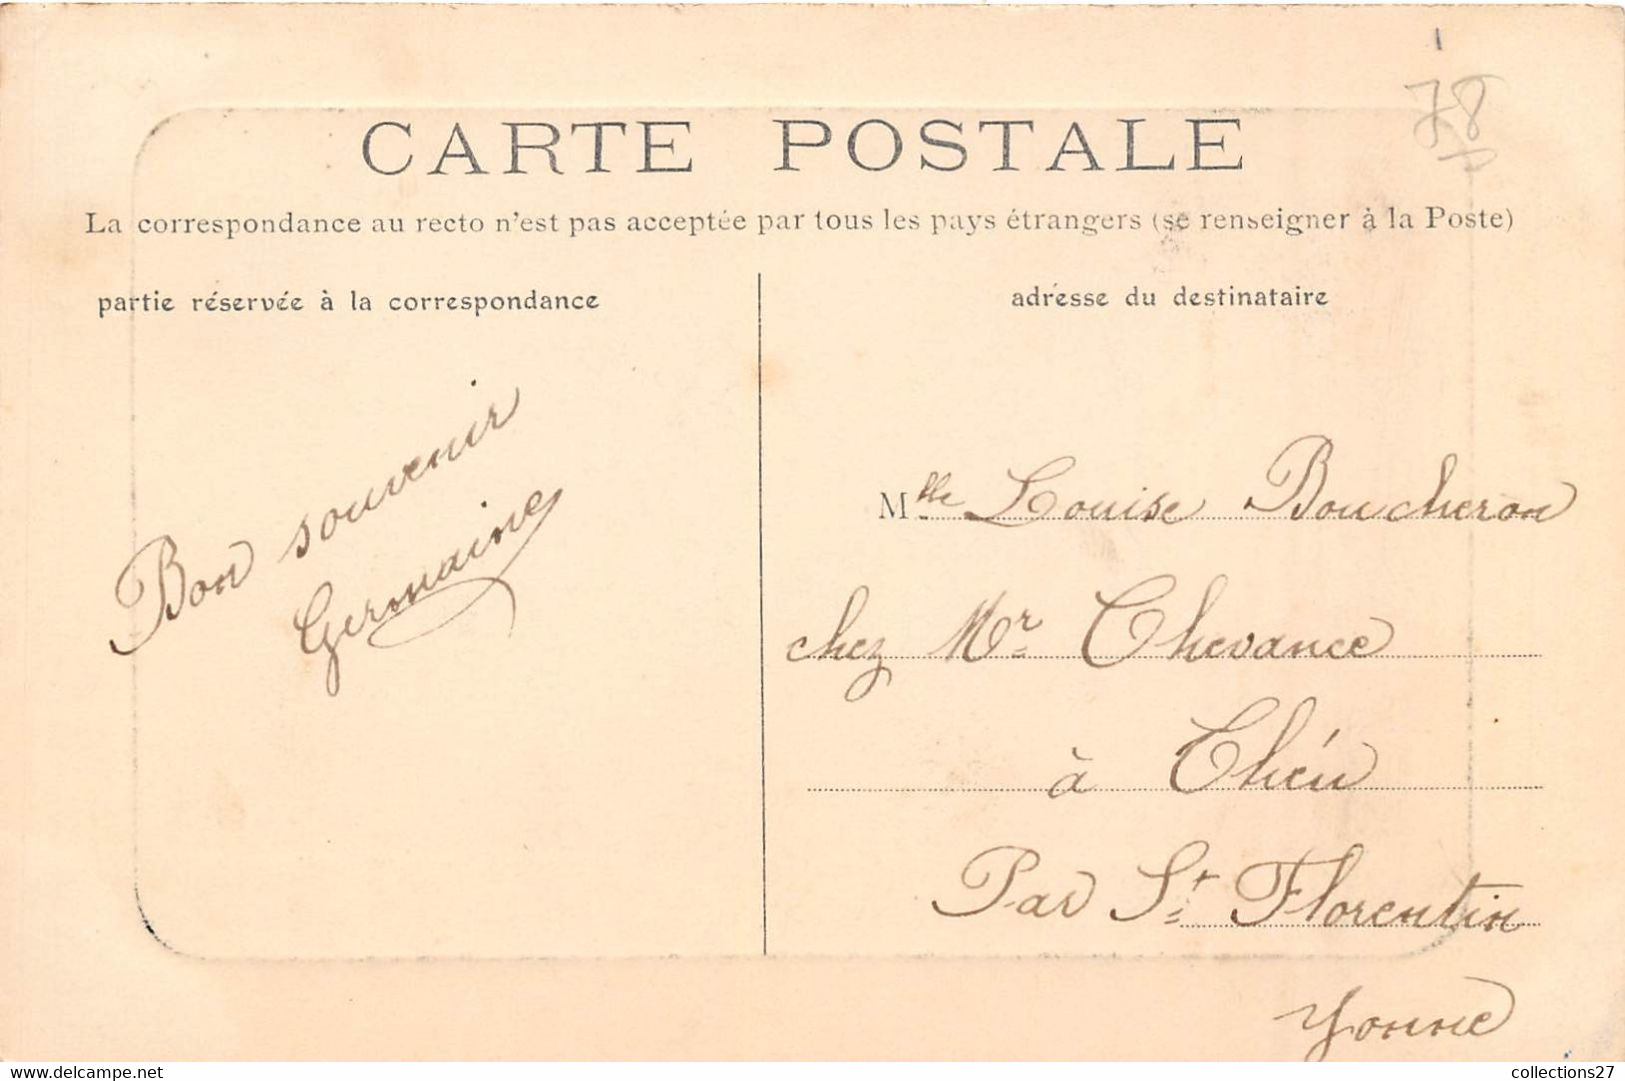 78
CARTE POSTALE
La correspondance au recto n'est pas acceptée par tous les pays étrangers (se renseigner à la Poste)
partie réservée à la correspondance
adresse du destinataire
Bon souvenir
Germaine
Mlle Louise Boucheron
chez Mr Chevance
à Chéu
Par St Florentin
Yonne
www.delcampe.net
collections27